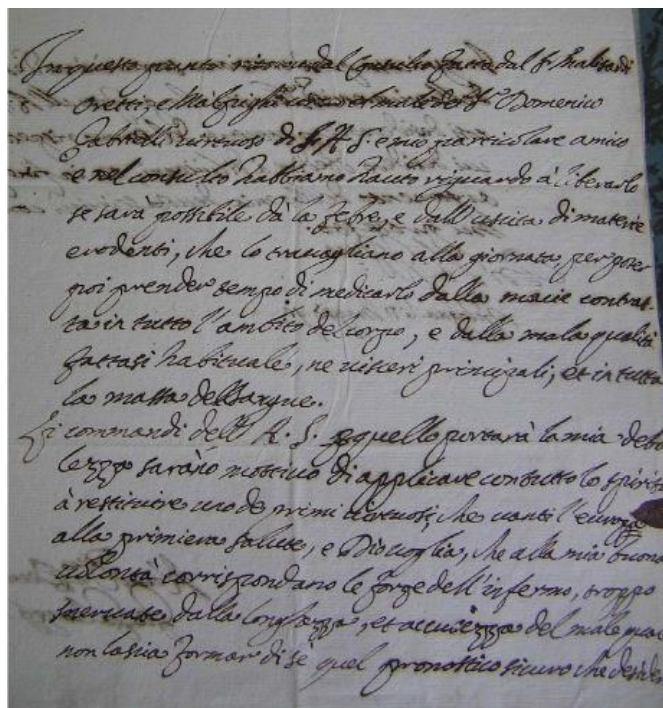 In questo punto ritorno dal Consulto fatto dal Sr
Oretti, e Malpighi il male del Sr Domenico
Gabrielli virtuoso di S. A. S. e mio particolare amico
e nel consulto habbiamo hauto riguardo à liberarlo
se sarà possibile dà la febre, e dall'uscita di materie
erodenti, che lo travagliano alla giornata, per poter
poi prender tempo di medicarlo dalla macie contrat-
ta in tutto l'ambito del corpo, e dalla mala qualità
fattasi habituale, ne visceri principali, et in tutta
la massa del sangue.
Li commandi dell' A. S. p quello portarà la mia debo
lezza sarano mottivo di applicare con tutto lo spirito
à restituire uno de primi virtuosi, che vanti l'europa
alla primiera salute, e Dio voglia, che alla mia buona
volontà corrispondano le forze dell'infermo, troppo
snervate dalla longhezza, et accutezza del male
non lascia formar di sè quel pronostico sicuro che